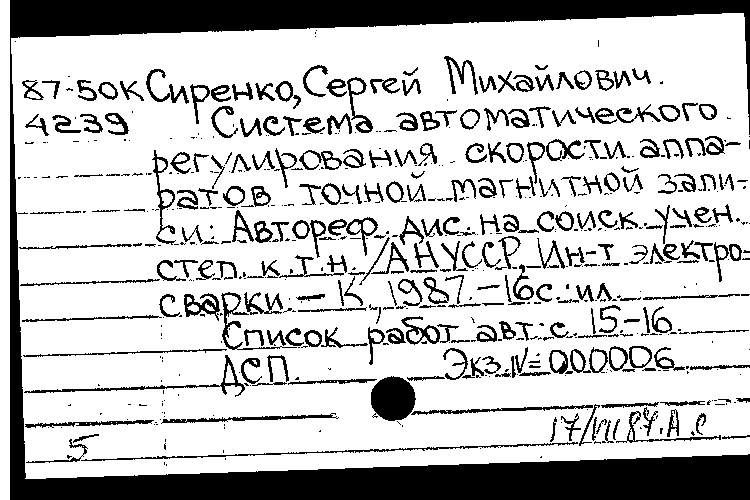 87-50К Сиренко, Сергей Михайлович.
4239 Система автоматического
регулирования скорости аппа-
ратов точной магнитной запи-
си: Автореф. дис. на соиск. учен.
степ. к.т.н. / АН УССР, Ин-т электро-
сварки. – К., 1987. – 16с.: ил.
Список работ авт.: с. 15-16.
ДСП. Экз. № 000006
17/VII 87. А.С
5